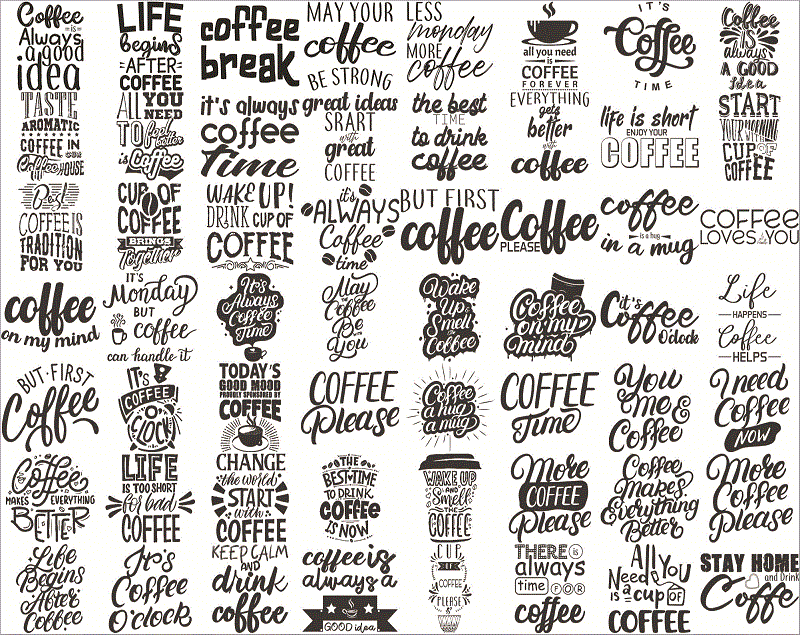 Coffee
is
Always
a good
idea
LIFE
begins
AFTER
COFFEE
coffee
break
MAY YOUR
coffee
BE STRONG
LESS
monday
MORE
coffee
all you need
is
COFFEE
FOREVER
IT'S
Coffee
TIME
Coffee
IS
always
A GOOD
Idea
TASTE
AROMATIC
COFFEE IN
OUR
Coffee HOUSE
ALL YOU
NEED
TO feel
better
is Coffee
it's always
coffee
Time
great ideas
SRART
with
great
COFFEE
the best
TIME
to drink
coffee
EVERYTHING
gets
better
with
coffee
life is short
ENJOY YOUR
COFFEE
START
YOUR
CUP OF
COFFEE
Best
COFFEE IS
TRADITION
FOR YOU
CUP OF
COFFEE
BRINGS
Together
WAKE UP!
DRINK CUP OF
COFFEE
it's
ALWAYS
Coffee
time
BUT FIRST
coffee
Coffee
PLEASE
coffee
is a hug
in a mug
COFFEE
LOVES YOU
coffee
on my mind
IT'S
Monday
BUT
coffee
can handle it
It's
Always
Coffee
Time
May
the
Coffee
Be
with
You
Wake
Up &
Smell
the
Coffee
Coffee
on my
mind
it's
Coffee
O'clock
Life
HAPPENS
Coffee
HELPS
BUT FIRST
Coffee
IT'S
COFFEE
O'CLOCK
TODAY'S
GOOD MOOD
PROUDLY SPONSORED BY
COFFEE
COFFEE
Please
Coffee
a hug
in
a mug
COFFEE
Time
You
Me &
Coffee
I need
Coffee
NOW
Coffee
MAKES EVERYTHING
BETTER
LIFE
IS TOO SHORT
for bad
COFFEE
CHANGE
the world
START
with
COFFEE
THE
BEST TIME
TO DRINK
Coffee
IS NOW
WAKE UP
AND
Smell
THE
COFFEE
More
COFFEE
Please
Coffee
Makes
Everything
Better
More
Coffee
Please
Life
Begins
After
Coffee
It's
Coffee
O'clock
KEEP CALM
AND
drink
coffee
coffee is
always a
GOOD idea
CUP
OF
COFFEE
PLEASE
THERE is
always
time FOR
coffee
All You
Need
is a cup OF
COFFEE
STAY HOME
and Drink
Coffe